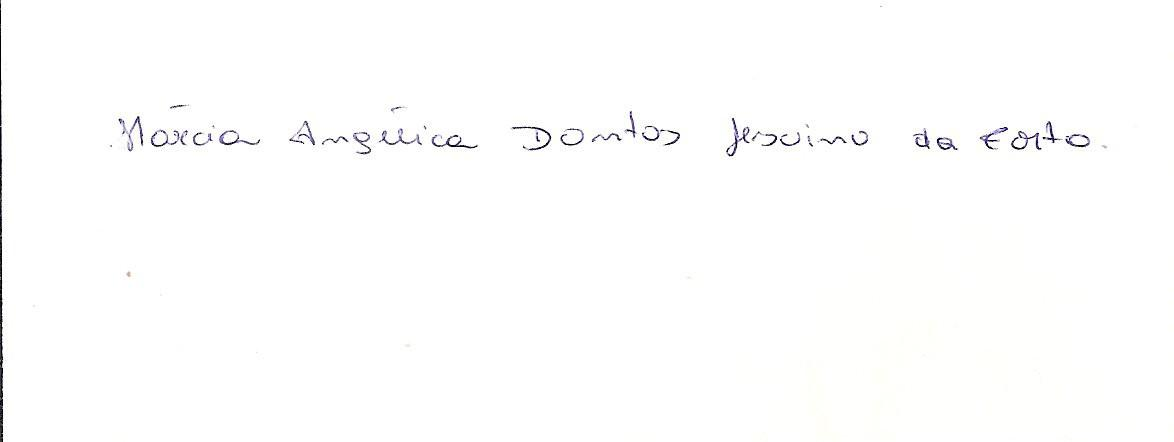 Márcia Angélica Dantas Jesuino da Costa.